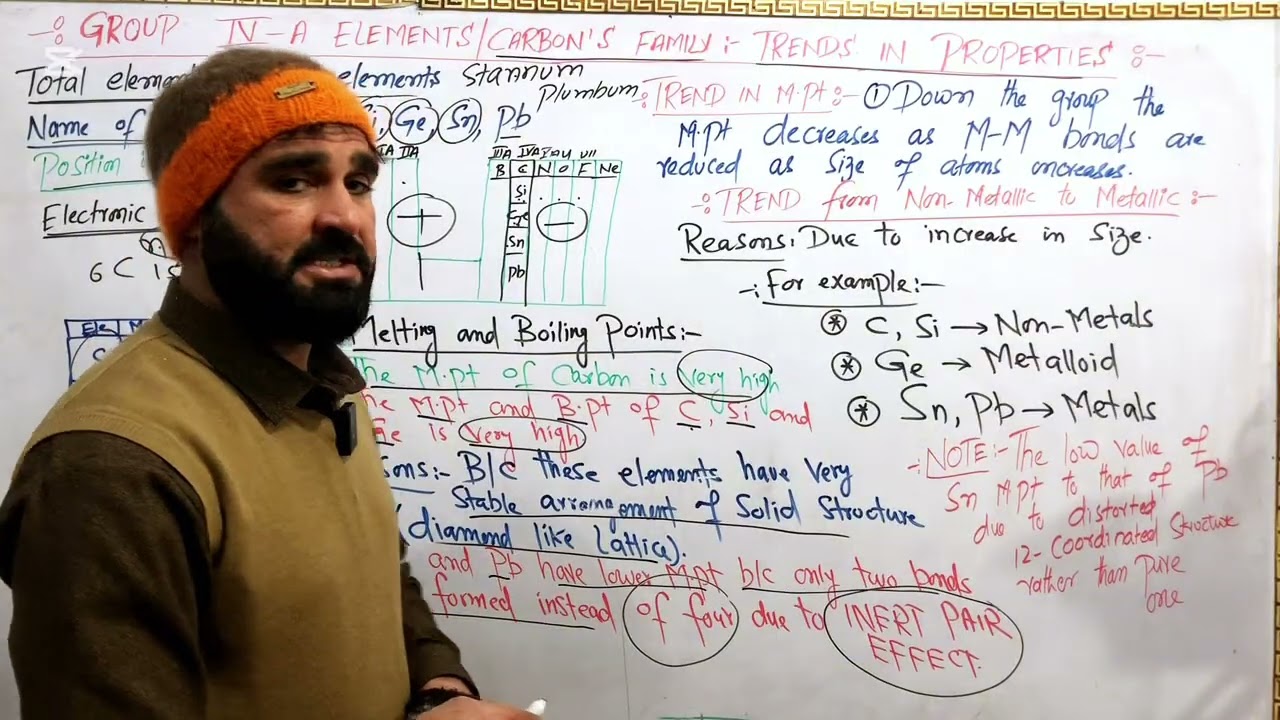 -:- GROUP IV-A ELEMENTS/CARBON'S FAMILY:- TRENDS IN PROPERTIES :-
Total elements Stannum
Plumbum
Name of Ge, Sn, Pb
Position
IA IIA IIIA IVA V VII
B C N O F Ne
Si
Ge
Sn
Pb
Electronic
6C 1s
Melting and Boiling Points:-
The M.pt of Carbon is very high
The M.pt and B.pt of C, Si and
Ge is very high
B/c these elements have very
Stable arrangement of Solid Structure
(diamond like lattice).
and Pb have lower M.pt b/c only two bonds
formed instead of four due to INERT PAIR
EFFECT.
-:TREND IN M.pt:- ① Down the group the
M.pt decreases as M-M bonds are
reduced as size of atoms increases.
-:- TREND from Non-Metallic to Metallic :-
Reasons: Due to increase in size.
-:For example:-
* C, Si → Non-Metals
* Ge → Metalloid
* Sn, Pb → Metals
-:NOTE:- The low value of
Sn M.pt to that of Pb
due to distorted
12-Coordinated Structure
rather than pure
one